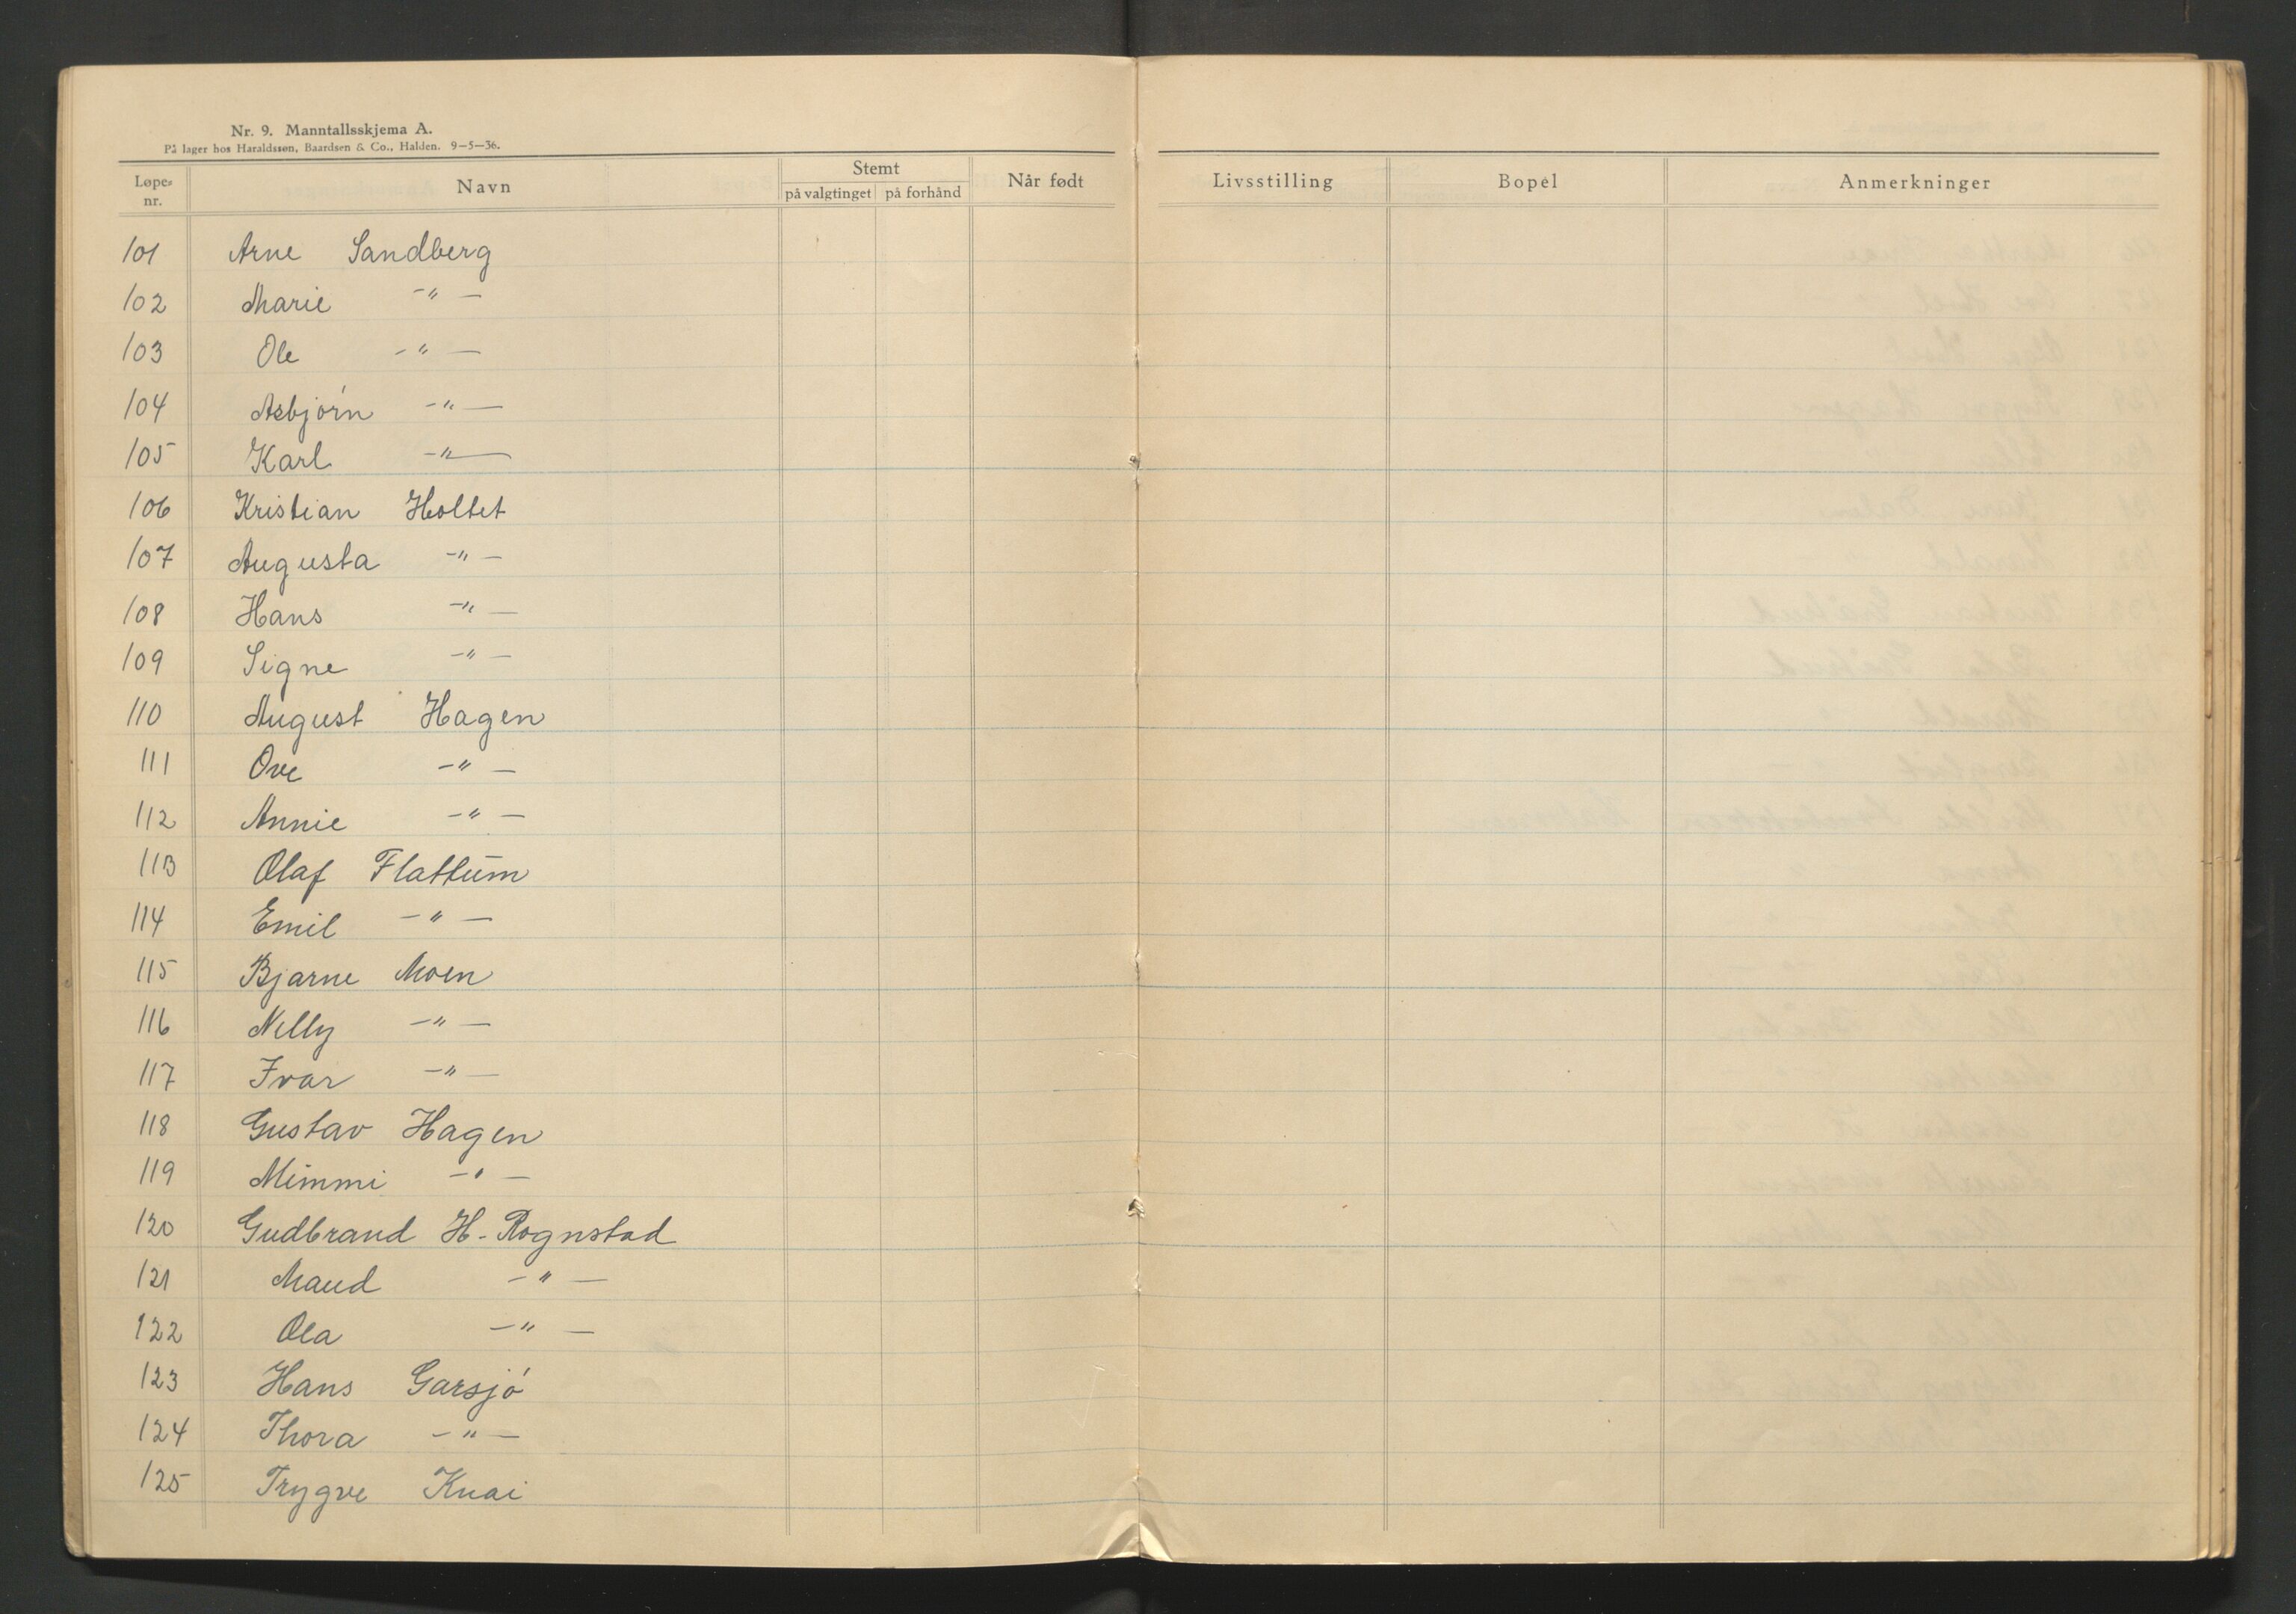 Nr. 9. Manntallsskjema A.
På lager hos Haraldssøn, Baardsen & Co., Halden. 9-5-36.
Løpe-nr. Navn Stemt på valgtinget på forhånd Når født Livsstilling Bopel Anmerkninger
101 Arne Sandberg
102 Marie -"-
103 Ole -"-
104 Asbjørn -"-
105 Karl -"-
106 Kristian Holtet
107 Augusta -"-
108 Hans -"-
109 Signe -"-
110 August Hagen
111 Ove -"-
112 Annie -"-
113 Olaf Flattum
114 Emil -"-
115 Bjarne Moen
116 Nelly -"-
117 Ivar -"-
118 Gustav Hagen
119 Mimmi -"-
120 Gudbrand H. Rognstad
121 Maud -"-
122 Ola -"-
123 Hans Garsjø
124 Thora -"-
125 Trygve Knai